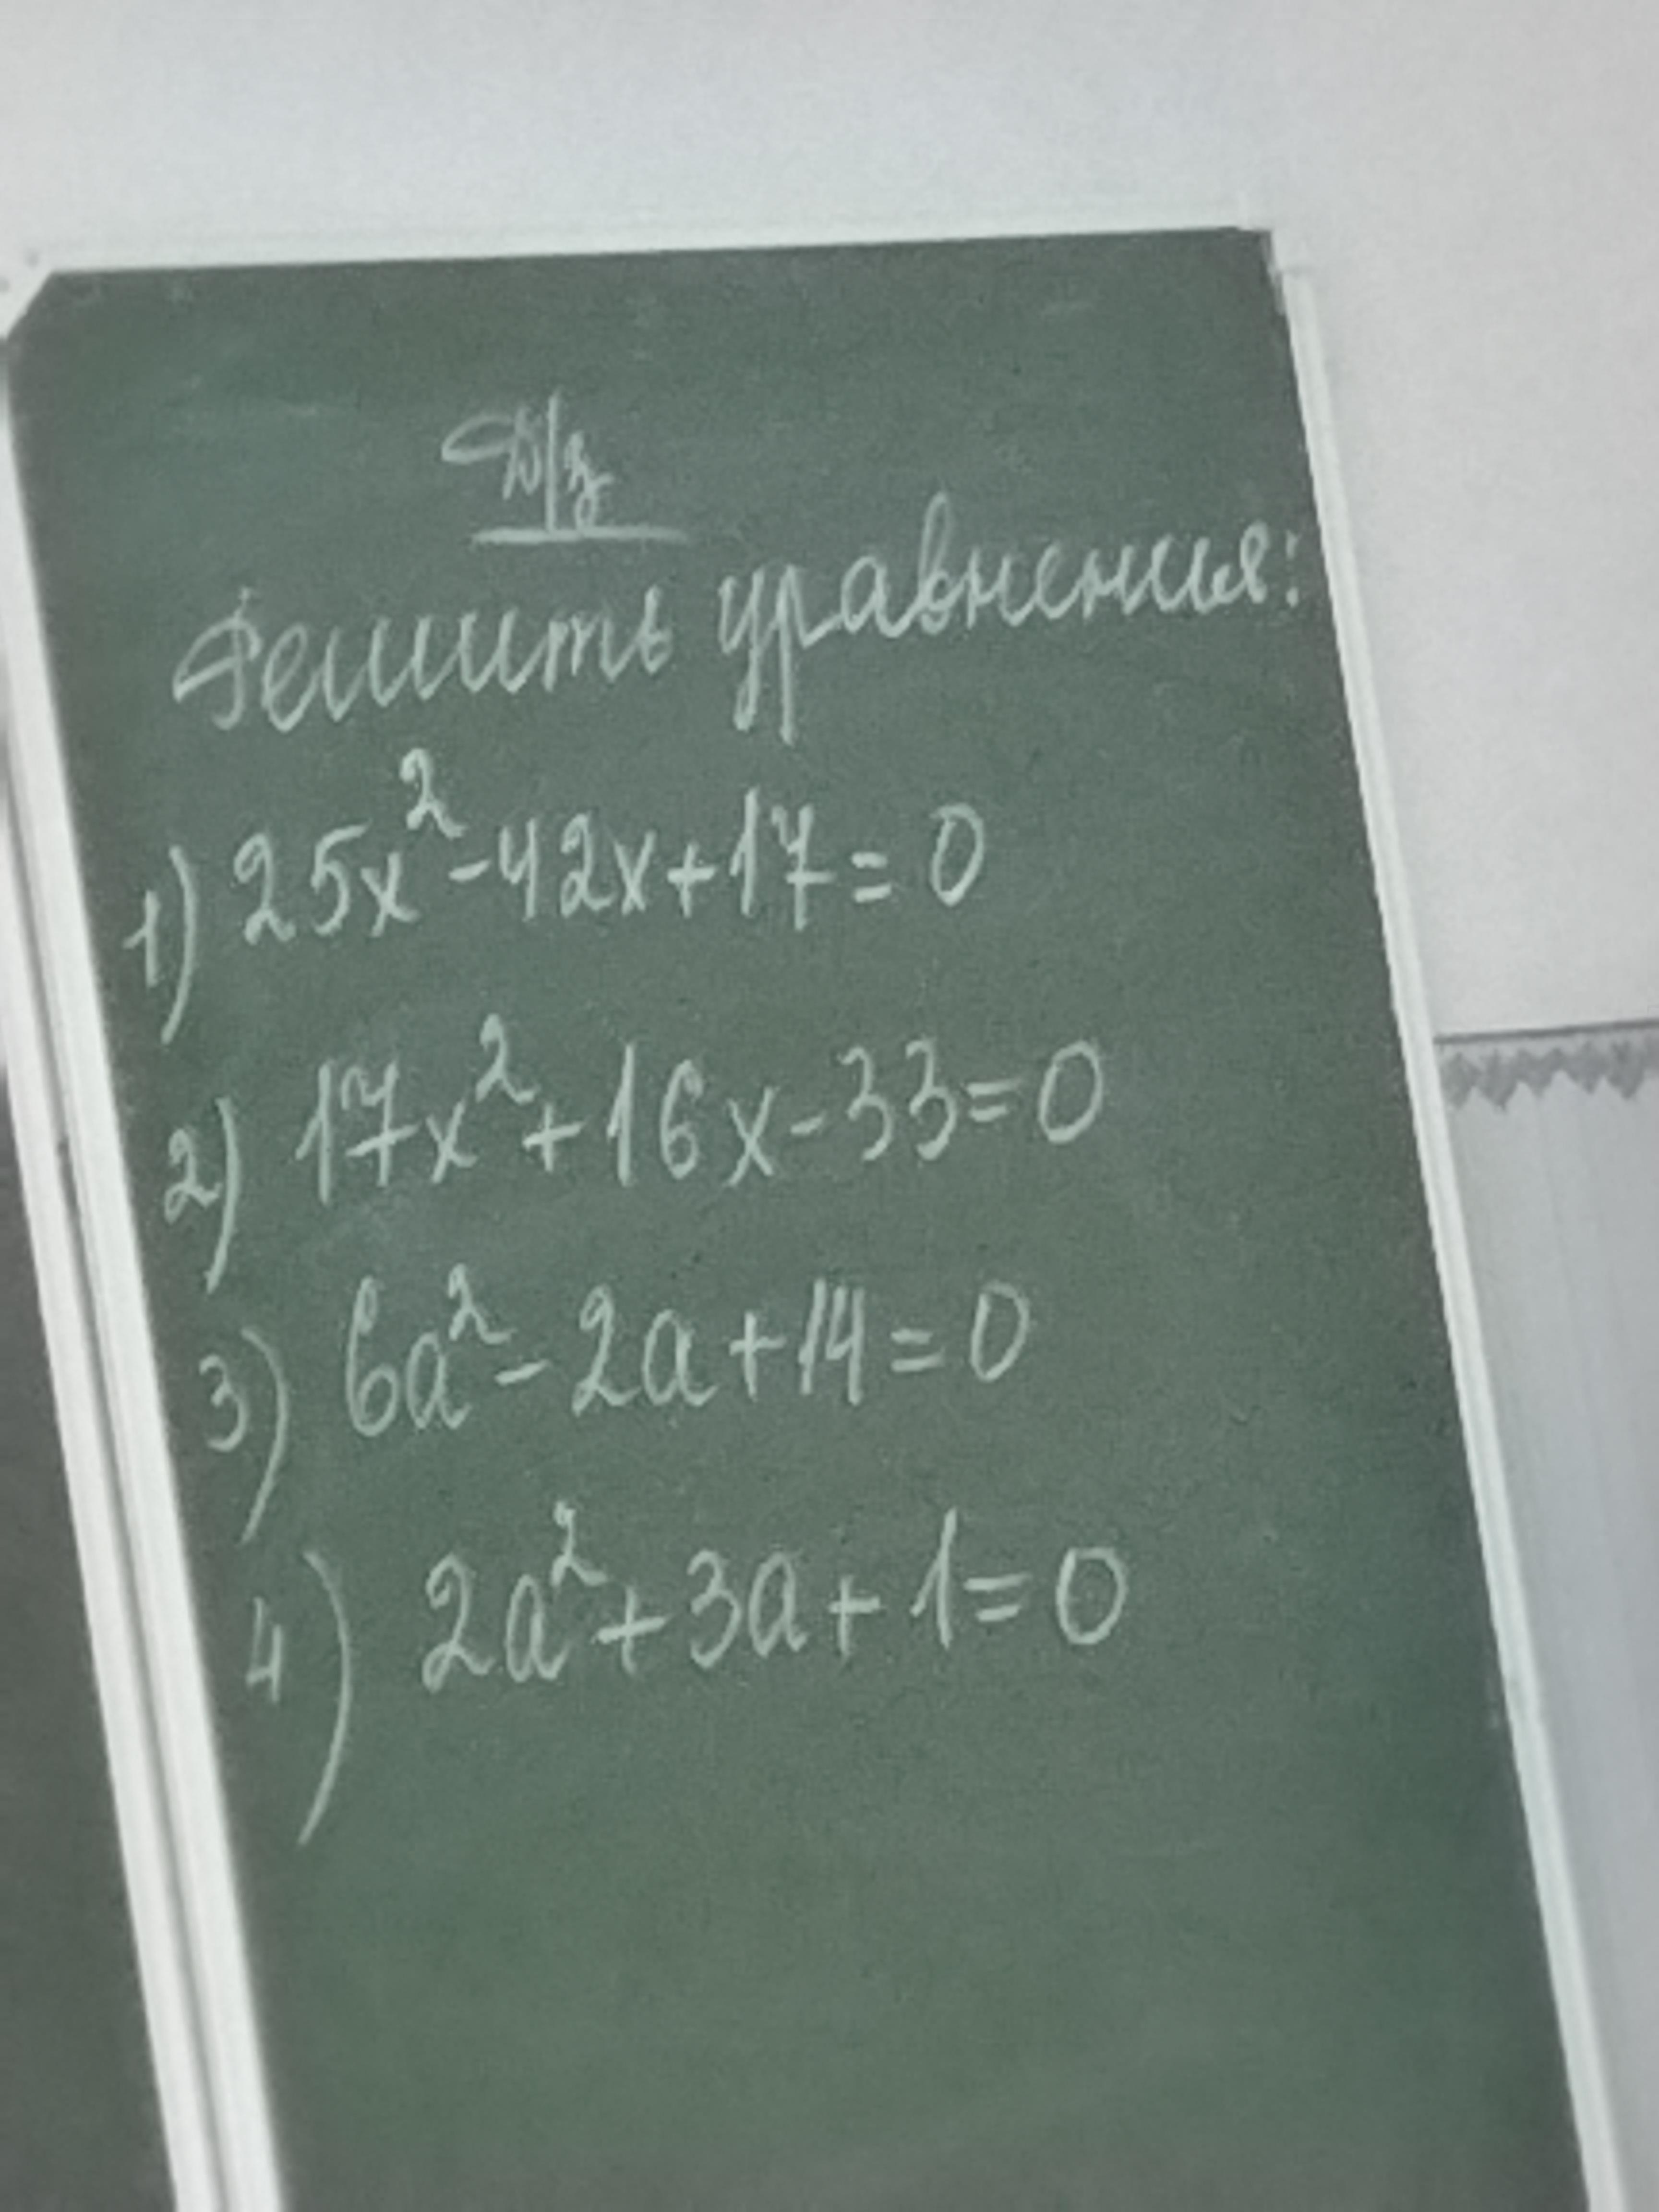 Д/з
Решить уравнения:
1) 25x²-42x+17=0
2) 17x²+16x-33=0
3) 6a²-2a+14=0
4) 2a²+3a+1=0